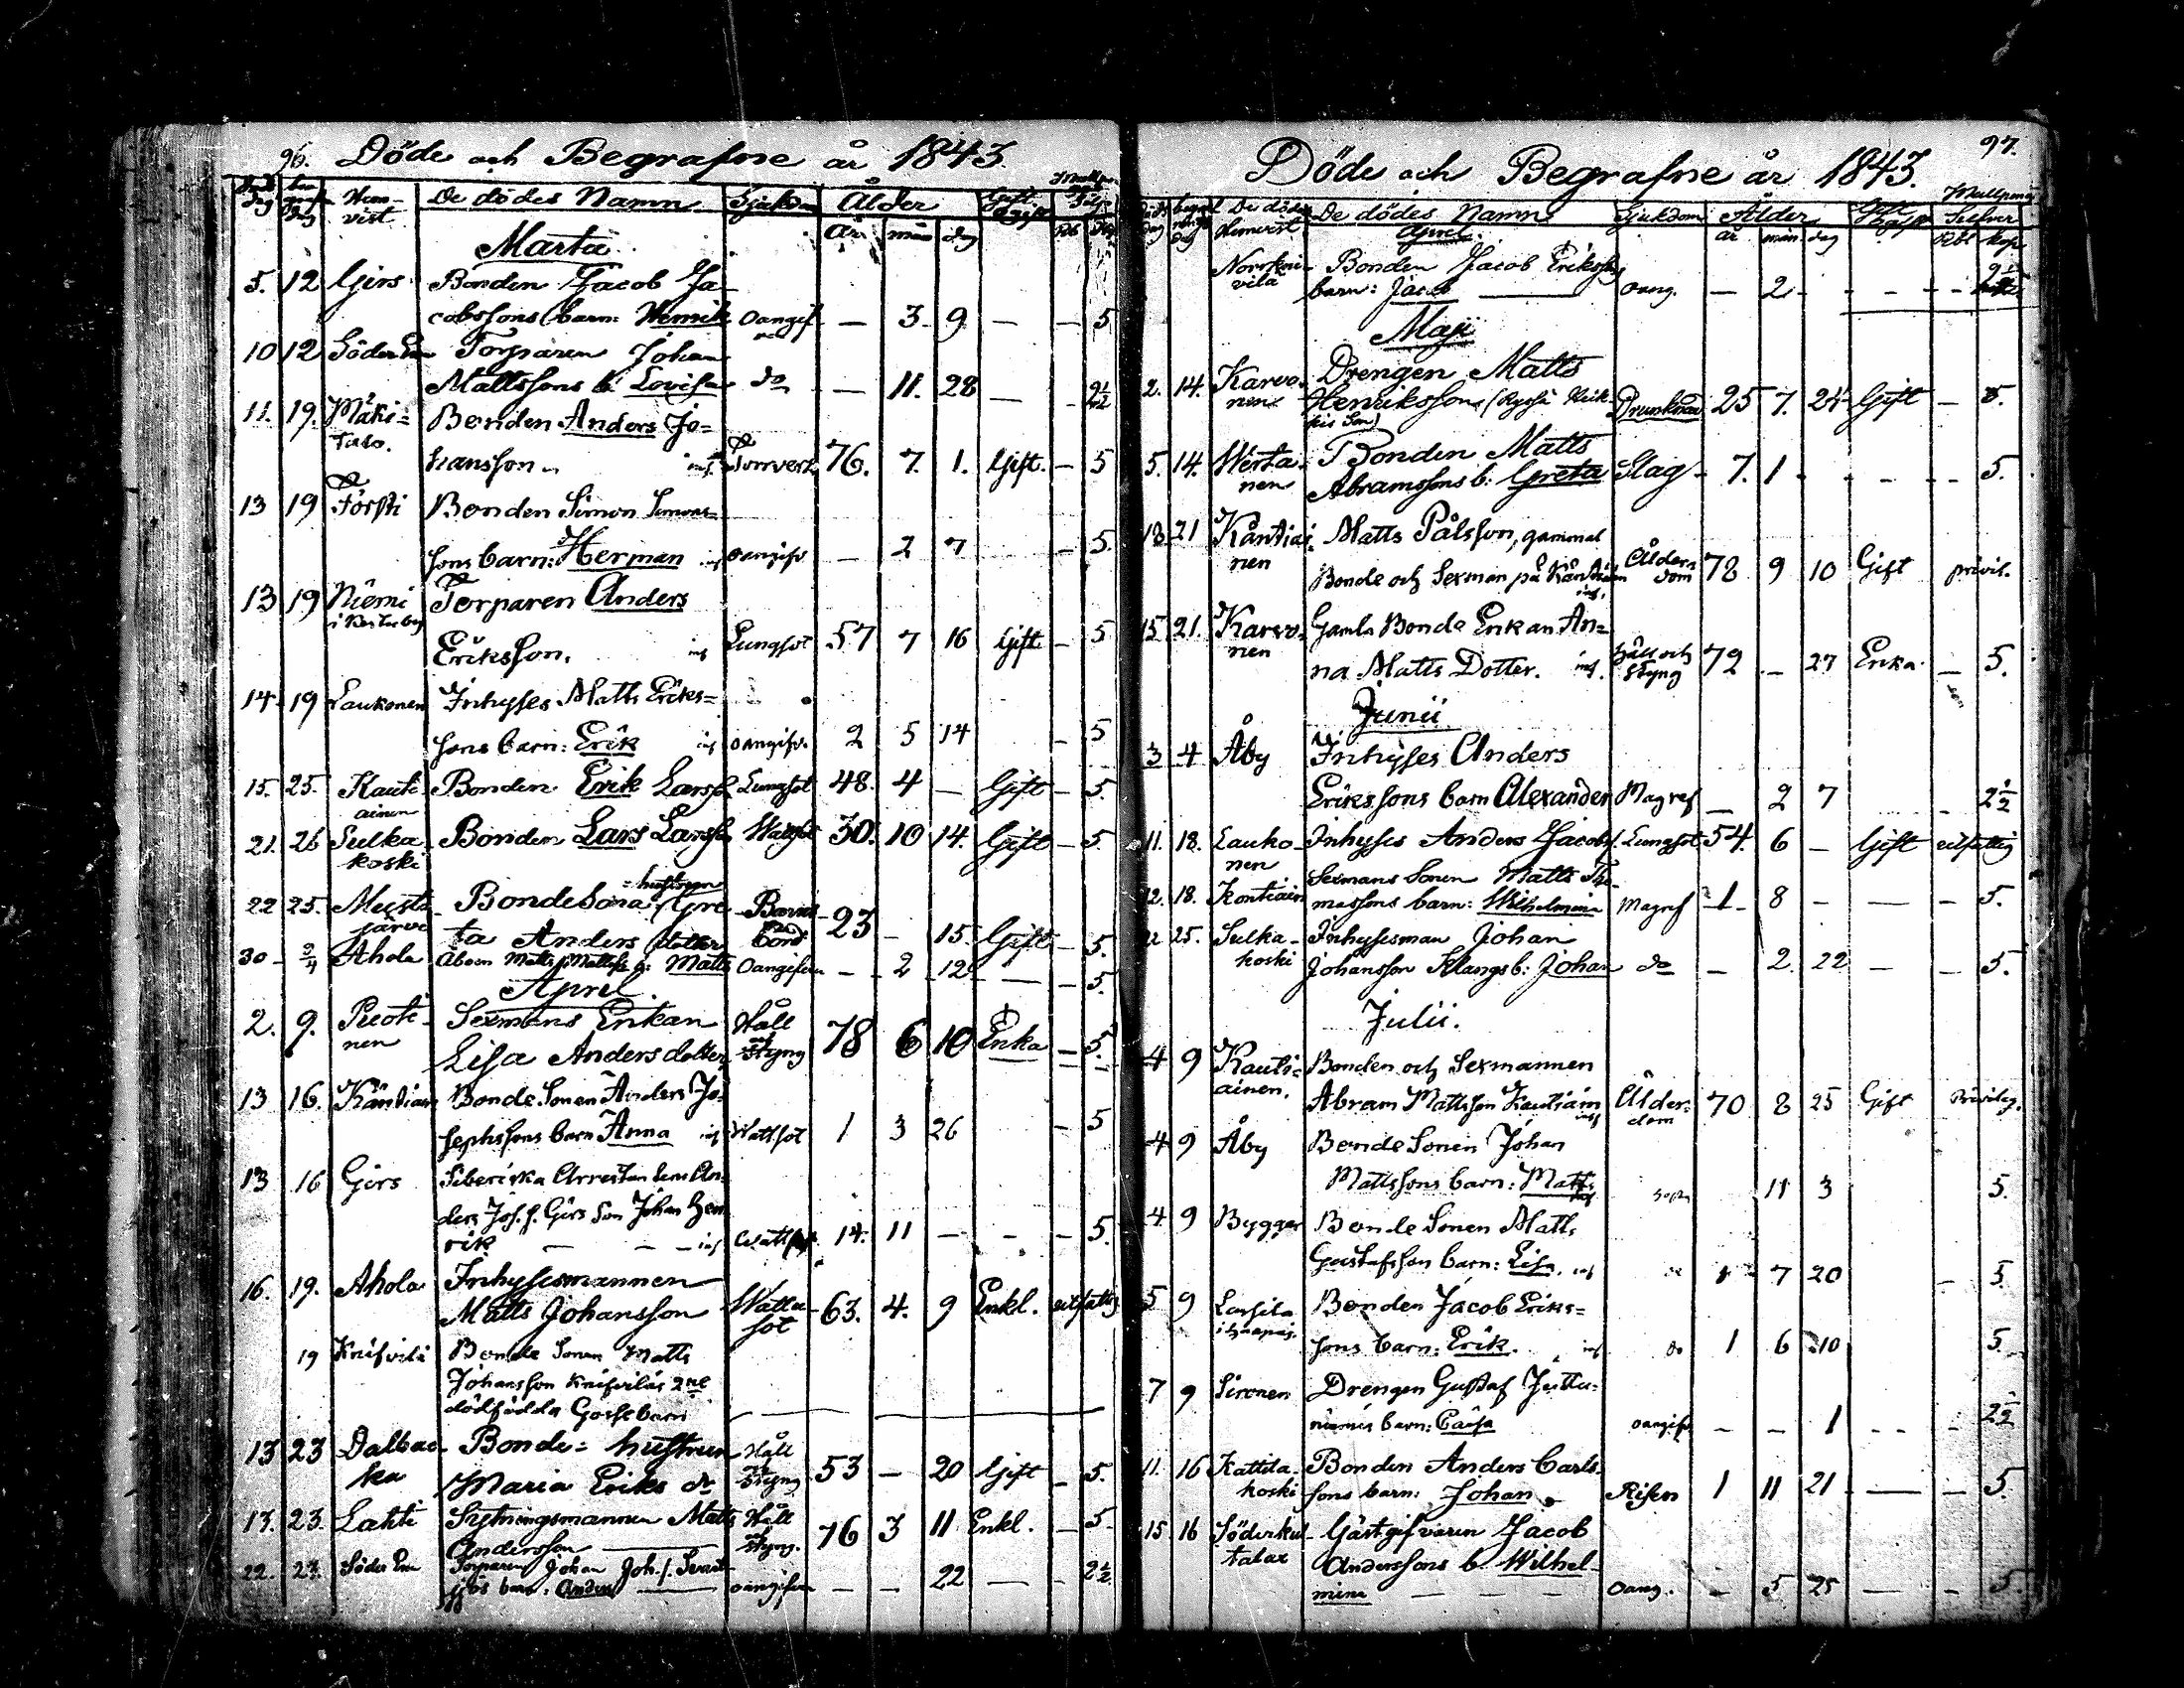 96. Döde och Begrafne år 1843.
Död dag Hem-vist De dödes Namn Sjukdom Ålder Gift ogift
År mån dag
Martii
5. 12 Girs Bonden Jacob Ja-
cobssons barn: Henrik oangif. — 3 9 — — 5
10 12 Torparen Johan
Mattssons b. Lovisa do — 11. 28 — 2½
11. 19. Mäki= Bonden Anders Jo=
talo. hansson 76. 7. 1. Gift. — 5
13 19 Försti Bonden Simon Simons=
sons barn: Herman oangifv — 2 7 — 5.
13 19 Niemi Torparen Anders
Eriksson. Lungsot 57 7 16 Gift — 5
14 19 Laukonen Inhyses Matts Eriks=
sons barn: Erik oangifv. 2 5 14 — 5
15. 25. Kauti-ainen Bonden Erik Larss. Lungsot 48. 4 — Gift — 5.
21. 26 Sulka Bonden Lars Larss. 30. 10 14. Gift — 5
koski
hustrun
22 25. Meista- Bondesona Gre- Barns-
järvi ta Anders dotter börd 23 — 15. Gift — 5.
30 2/4 Ahola Matts oangifven — 2 12 — 5.
Aprel
2. 9. Puoti- Sexmans Enkan Håll
nen Lisa Anders dotter styng 78 6 10 Enka — 5.
13 16. Käntiäin Bonde Sonen Anders Jo-
sephssons barn Anna Wattsot 1 3 26 — 5
13 16 Girs Siberiska Arrestan
ders Jos. s. Girs Son Johan Hen
rik — — Wattsot 14. 11 — — — 5.
16. 19. Ahola Inhysesmannen
Matts Johansson Wattu-sot 63. 4. 9 Enkl. utfattig
19 Knifvilä Bonde Sonen Matts
Johansson Knifviläs 2ne
dödfödda Gossebarn
13 23 Dalbac- Bonde= hustrun Håll
ka Maria Eriks dr styng 53 — 20 Gift — 5.
13. 23. Lahti Sytningsmannen Matts Håll
Andersson styng. 76 3 11 Enkl. — 5
22. 23. Torparen Johan Joh. s.
barn: Anders oangifven — — 22 — — 2½
Döde och Begrafne år 1843. 97.
De dödas Hemvist De dödes Namn Sjukdom Ålder Gift ogift Silfver
år mån dag Rbl kop
Aprel.
Bonden Jacob Erikss.
vilä barn: Jacob oang. — 2 - - - -
Maji
2. 14. Karvo- Drengen Matts
nen Henriksson Drunknad 25 7. 24 Gift — 5.
5. 14. Werta- Bonden Matts
nen Abramssons b: Greta Slag - 7. 1 - - - - 5.
18 21 Käntiäi- Matts Pålsson, gammal
nen Bonde och Sexman på Käntiäinen Ålder-dom 78 9 10 Gift privil.
15 21. Karvo- Gamla Bonde Enkan An=
nen na Matts Dotter. Håll och styng 72 — 27 Enka — 5.
Junii
3 4 Åby Inhyses Anders
Erikssons barn Alexander Magref — 2 7 — 2½
11. 18. Lauko- Inhyses Anders Jacobs. Lungsot 54. 6 — Gift utfattig
nen
12. 18. Kontiain Sexmans Sonen Matts Tho-
massons barn: Wilhelmina Magref 1 8 — — — 5.
22 25. Sulka- Inhysesman Johan
koski Johansson Klangs b: Johan do — 2. 22 — — 5.
Julii.
4 9 Kauti= Bonden och Sexmannen
ainen. Abram Mattsson Kautiain Ålder-dom 70 8 25 Gift Privileg.
4 9 Åby Bonde Sonen Johan
Mattssons barn: Matts 11 3 5.
4 9 Byggar Bonde Sonen Matts
Gustafsson barn: Lisa. 7 20 — 5
5 9 Lassila Bonden Jacob Eriks=
sons barn: Erik. do 1 6 10 5
7 9 Sironen Drengen Gustaf Juttu-
niemis barn: Caisa oangifv — — 1 - - - 2½
11. 16 Kattila- Bonden Anders Carls-
koski sons barn: Johan Risen 1 11 21 — — 5.
15. 16 Söderkul- Gästgifvaren Jacob
talax Anderssons b. Wilhel-
mina — — — oang. — 5 25 — — 5.